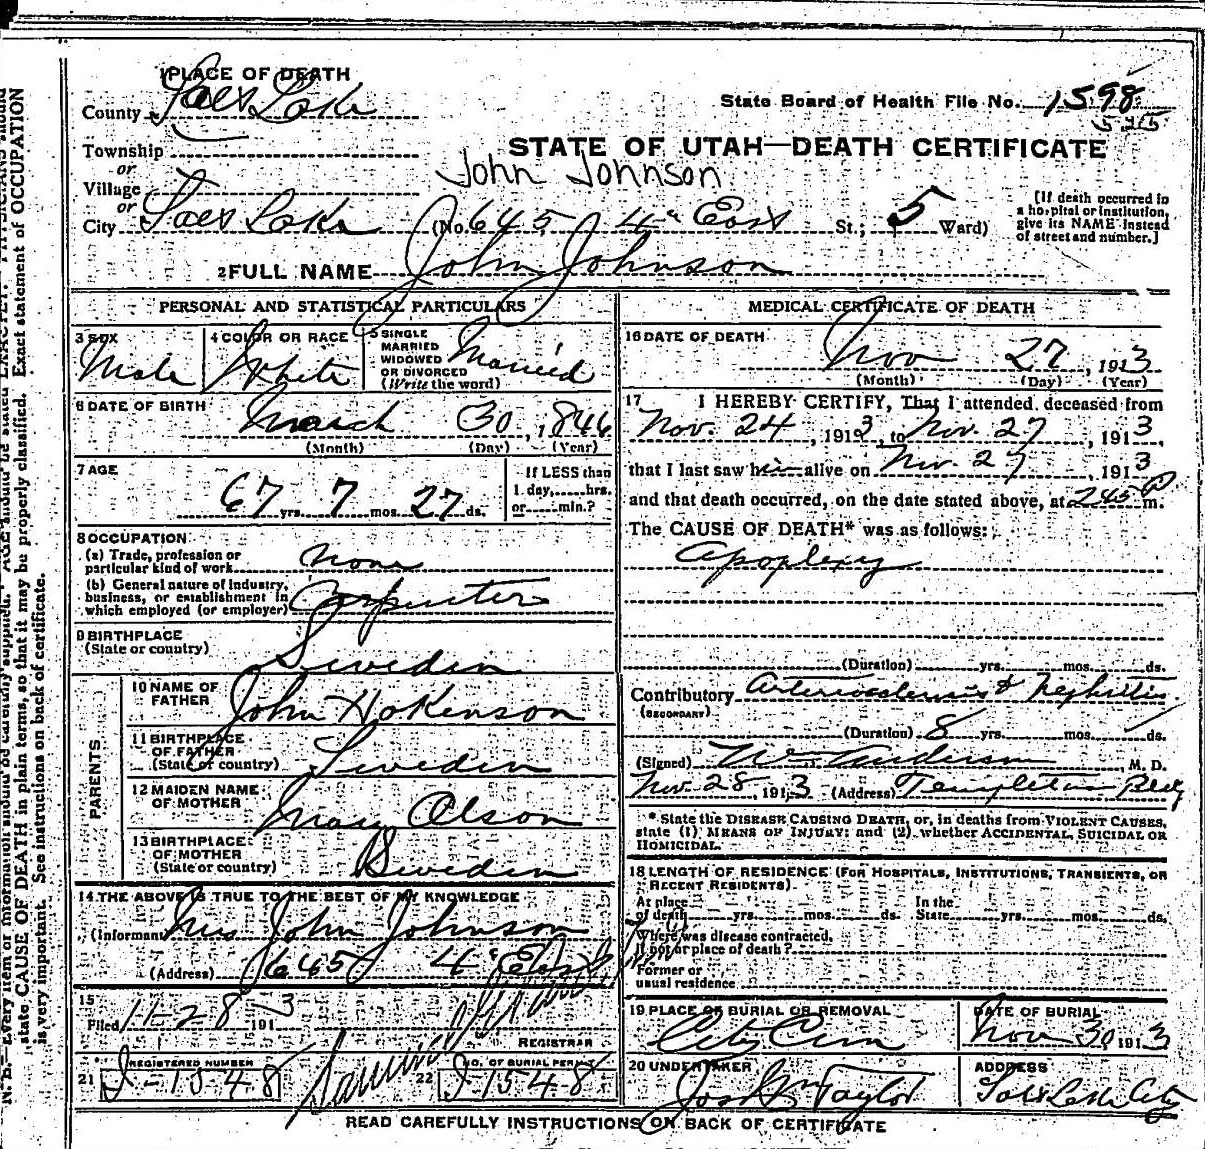 1 PLACE OF DEATH
County Salt Lake
State Board of Health File No. 1598
Township
or
STATE OF UTAH—DEATH CERTIFICATE
Village
or
John Johnson
City Salt Lake (No. 645 4" East St.; 5 Ward)
[If death occurred in
a hospital or institution,
give its NAME instead
of street and number.]
2 FULL NAME John Johnson
PERSONAL AND STATISTICAL PARTICULARS
3 SEX
Male
4 COLOR OR RACE
White
5 SINGLE
MARRIED
WIDOWED
OR DIVORCED
(Write the word)
Married
6 DATE OF BIRTH
March 30, 1846
(Month) (Day) (Year)
7 AGE
67 yrs. 7 mos. 27 ds.
If LESS than
1 day,......hrs.
or......min.?
8 OCCUPATION
(a) Trade, profession or
particular kind of work None
(b) General nature of industry,
business, or establishment in
which employed (or employer) Carpenter
9 BIRTHPLACE
(State or country)
Sweden
PARENTS
10 NAME OF
FATHER
John Hokenson
11 BIRTHPLACE
OF FATHER
(State or country) Sweden
12 MAIDEN NAME
OF MOTHER
Mary Olson
13 BIRTHPLACE
OF MOTHER
(State or country) Sweden
14 THE ABOVE IS TRUE TO THE BEST OF MY KNOWLEDGE
(Informant) Mrs John Johnson
(Address) 645 4" East
15
Filed 11-28-3 191
REGISTRAR
REGISTERED NUMBER
21 J-1548
NO. OF BURIAL PERMIT
22 J 1548
MEDICAL CERTIFICATE OF DEATH
16 DATE OF DEATH
Nov 27, 1913
(Month) (Day) (Year)
17 I HEREBY CERTIFY, That I attended deceased from
Nov. 24, 1913, to Nov. 27, 1913,
that I last saw him alive on Nov. 27, 1913
and that death occurred, on the date stated above, at 2.45 P m.
The CAUSE OF DEATH* was as follows:
Apoplexy
(Duration) yrs. mos. ds.
Contributory Arteriosclerosis & Nephritis
(SECONDARY)
(Duration) 8 yrs. mos. ds.
(Signed) Wm Anderson M. D.
Nov. 28, 1913 (Address) Templeton Bldg
* State the DISEASE CAUSING DEATH, or, in deaths from VIOLENT CAUSES,
state (1) MEANS OF INJURY; and (2) whether ACCIDENTAL, SUICIDAL OR
HOMICIDAL.
18 LENGTH OF RESIDENCE (FOR HOSPITALS, INSTITUTIONS, TRANSIENTS, OR
RECENT RESIDENTS).
At place
of death yrs. mos. ds.
In the
State yrs. mos. ds.
Where was disease contracted,
if not at place of death?
Former or
usual residence
19 PLACE OF BURIAL OR REMOVAL
City Cem
DATE OF BURIAL
Nov 30 1913
20 UNDERTAKER
Jos Wm Taylor
ADDRESS
Salt Lake City
READ CAREFULLY INSTRUCTIONS ON BACK OF CERTIFICATE
state CAUSE OF DEATH in plain terms, so that it may be properly classified. Exact statement of OCCUPATION
is very important. See instructions on back of certificate.